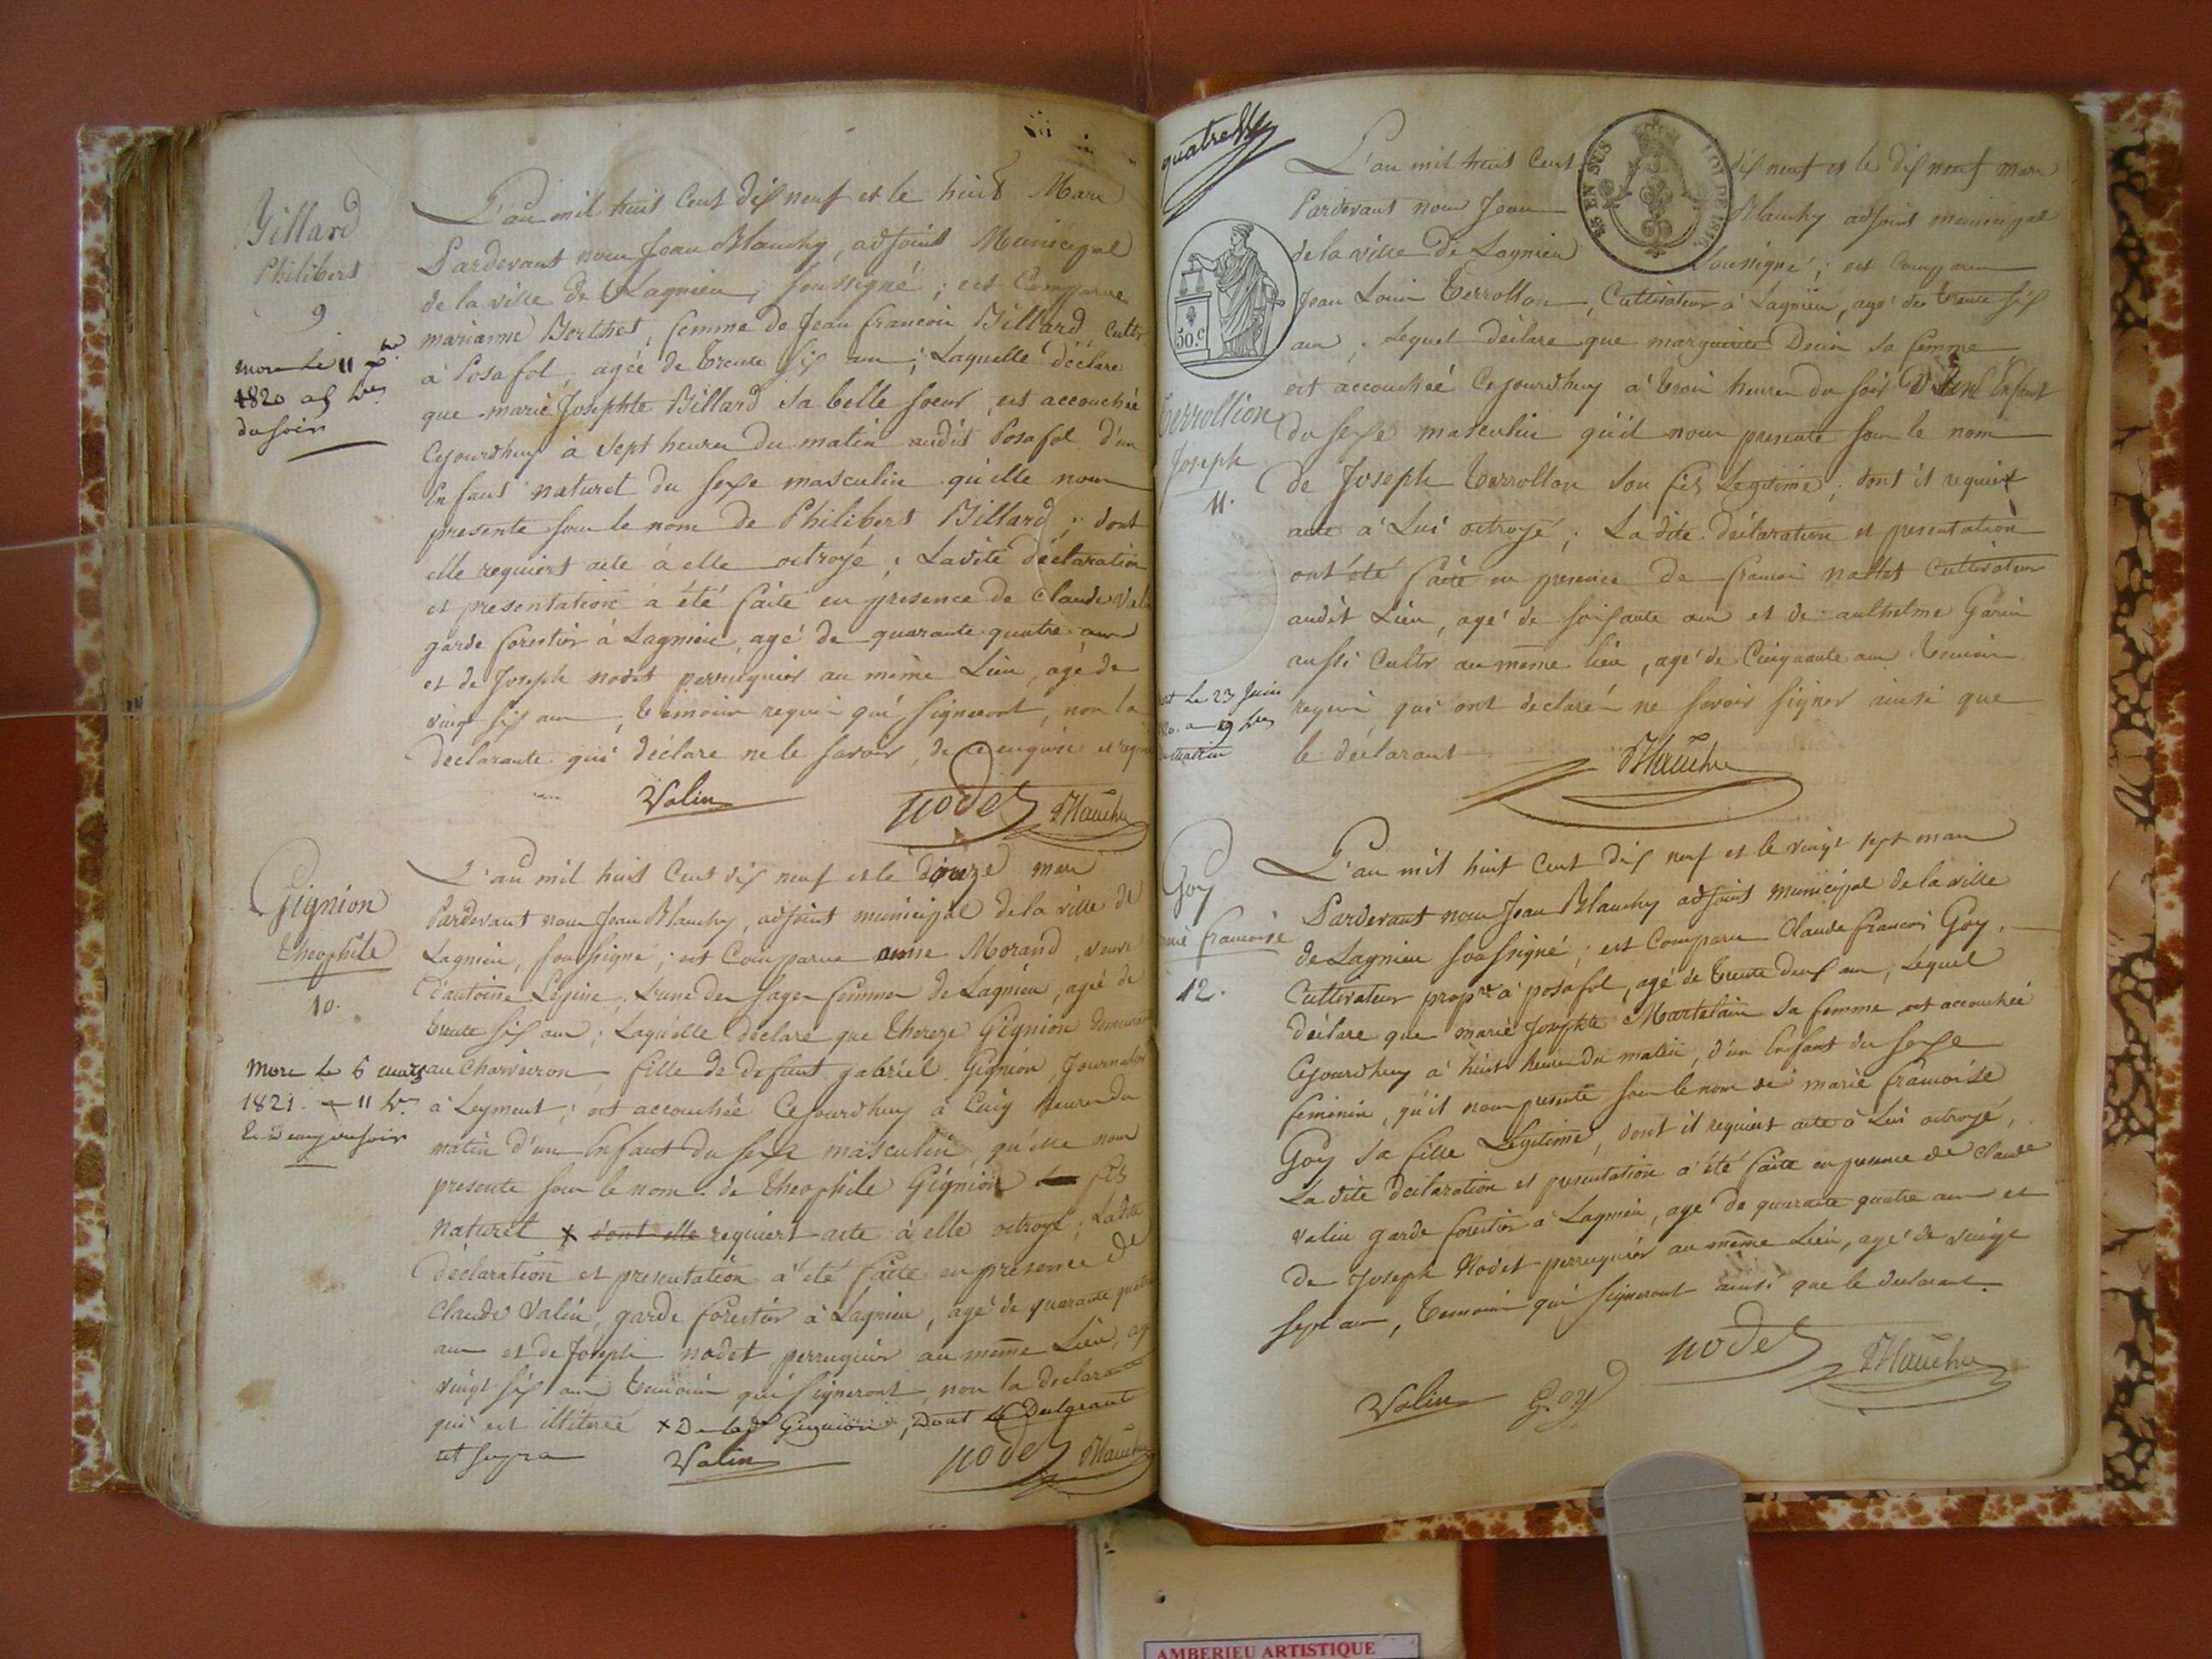 Billard
Philibert
9
mort le 11 7bre
1820 a 5 hres
du soir
L'an mil huit Cent dix neuf et le huit Mars
Pardevant nous Jean Blanchy, adjoint Municipal
de la ville de Lagnieu, soussigné ; est Comparue
marianne Berthet, femme de Jean francois Billard, Cultr
à Posafol, agée de trente six ans ; Laquelle déclare
que marie Josephte Billard sa belle soeur, est accouchée
Cejourdhuy à sept heures du matin audit Posafol d'un
Enfant naturel du sexe masculin qu'elle nous
presente sous le nom de Philibert Billard ; dont
elle requiert acte à elle octroyé ; Ladite déclaration
et presentation a été faite en presence de Claude Valin
garde forestier à Lagnieu, agé de quarante quatre ans
et de Joseph nodet perruquier au même Lieu, agé de
vingt six ans, temoins requis qui signeront, non la
declarante qui déclare ne le savoir, de ce enquise et requise
Valin nodet Blanchy
Gignion
theophile
10.
Mort le 6 mars
1821. a 11 hres
du soir
L'an mil huit Cent dix neuf et le douze mars
Pardevant nous Jean Blanchy, adjoint municipal de la ville de
Lagnieu, soussigné ; est Comparue anne Morand, veuve
d'antoine Lépine, L'une des sages femmes de Lagnieu, agée de
trente six ans ; Laquelle déclare que thereze Gignion demeurant
au Charveiron, fille de defunt gabriel Gignion, Journalier
à Leyment ; est accouchée Cejourdhuy à Cinq heures du
matin d'un Enfant du sexe masculin, qu'elle nous
presente sous le nom de theophile Gignion fils
naturel x dont elle requiert acte à elle octroyé ; Ladite
déclaration et presentation a été faite en présence de
Claude Valin, garde forestier à Lagnieu, agé de quarante quatre
ans et de Joseph nodet perruquier au même Lieu, agé
vingt six ans temoins qui signeront, non la declarante
qui est illiterée x De lad. Gignion, Dont la Declarante
ut supra Valin nodet Blanchy
quatre
ES EN SUS
LOI DE 1816.
50. c
terrollion
Joseph
11.
mort Le 23 Juin
1820. a 9 hres
du matin
L'an mil huit Cent dix neuf et le dix neuf mars
Pardevant nous Jean Blanchy adjoint municipal
de la ville de Lagnieu Soussigné ; est Comparu
Jean Louis terrollon, Cultivateur à Lagnieu, agé de trente six
ans ; Lequel déclare que marguerite Decin sa femme
est accouchée Cejourdhuy à trois heures du soir D'un Enfant
du sexe masculin qu'il nous presente sous le nom
de Joseph terrollon son fils Legitime ; dont il requiert
acte à Lui octroyé ; La dite déclaration et presentation
ont été faite en presence de francois nallet Cultivateur
audit Lieu, agé de soixante ans et de anthelme Garin
aussi Cultr au même lieu, agé de Cinquante ans temoins
requis qui ont declaré ne savoir signer ainsi que
le déclarant Blanchy
Goy
marie francoise
12.
L'an mil huit Cent dix neuf et le vingt sept mars
Pardevant nous Jean Blanchy adjoint municipal de la ville
de Lagnieu soussigné ; est Comparu Claude francois Goy,
Cultivateur propre à posafol, agé de trente deux ans, Lequel
déclare que marie Josephte Martelain sa femme est accouchée
Cejourdhuy à huit heures du matin, d'un Enfant du sexe
feminin, qu'il nous presente sous le nom de marie francoise
Goy sa fille Legitime, dont il requiert acte à Lui octroyé,
La dite declaration et presentation a été faite en presence de Claude
valin garde forestier à Lagnieu, agé de quarante quatre ans et
de Joseph Nodet perruquier au même Lieu, agé de vingt
sept ans, temoins qui signeront ainsi que le declarant.
Valin Goy nodet Blanchy
AMBERIEU ARTISTIQUE